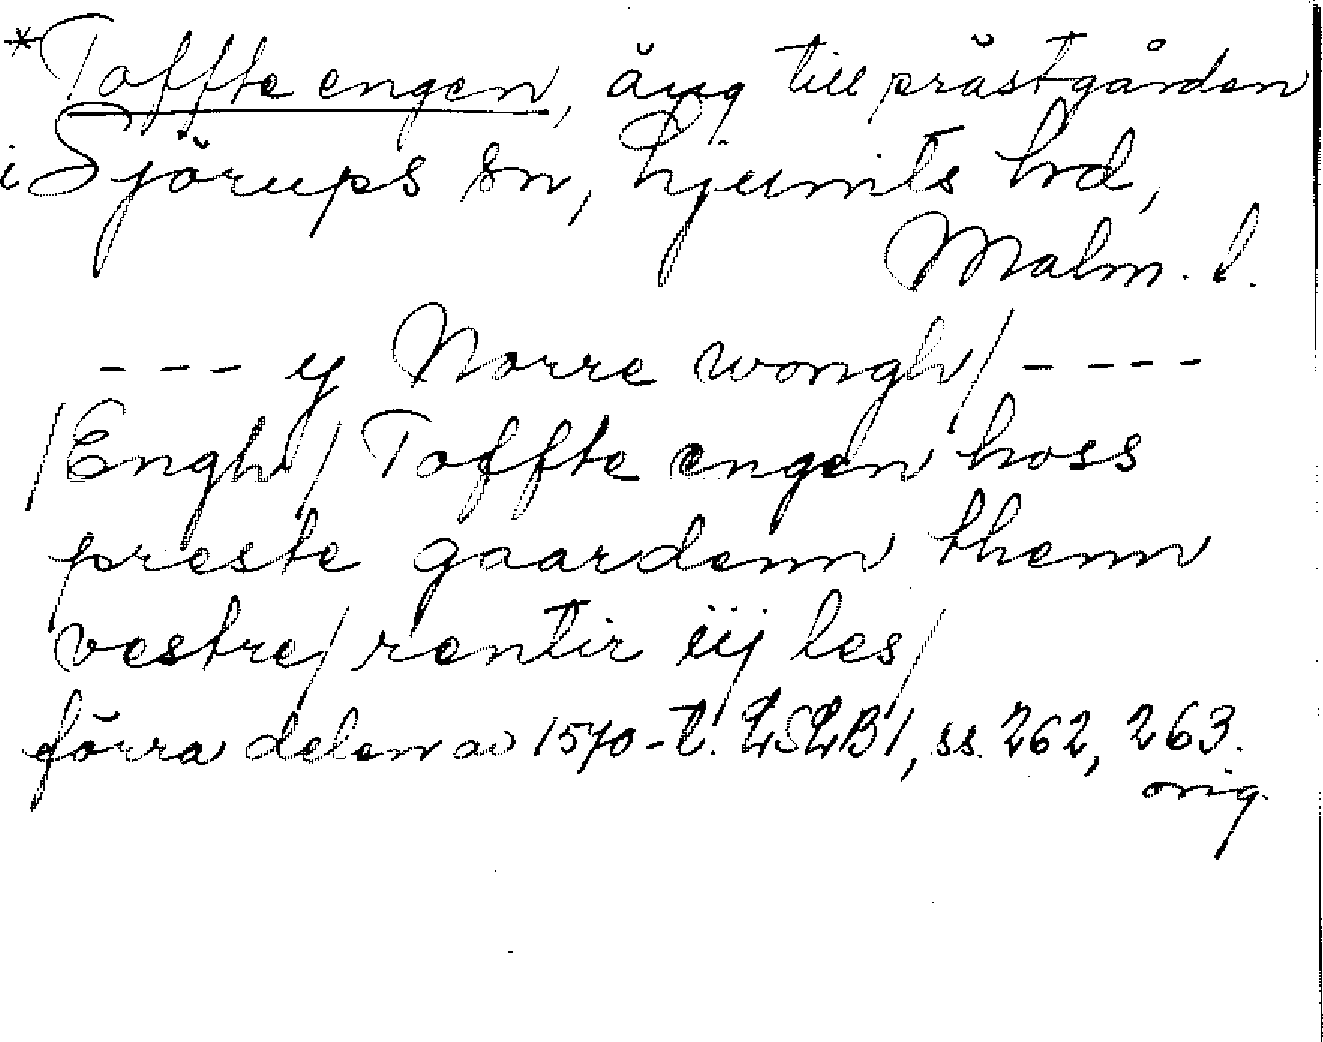 *Toffte engen, äng till prästgården
i Sjörups sn, Ljunits hd,
Malm. l.
--- y Norre wongh/ ----
/Engh/ Toffte engen hoss
preste gaardenn thenn
vestre/ rentir iij les/
förra delen av 1570-t. LSLB 1, ss. 262, 263.
orig.